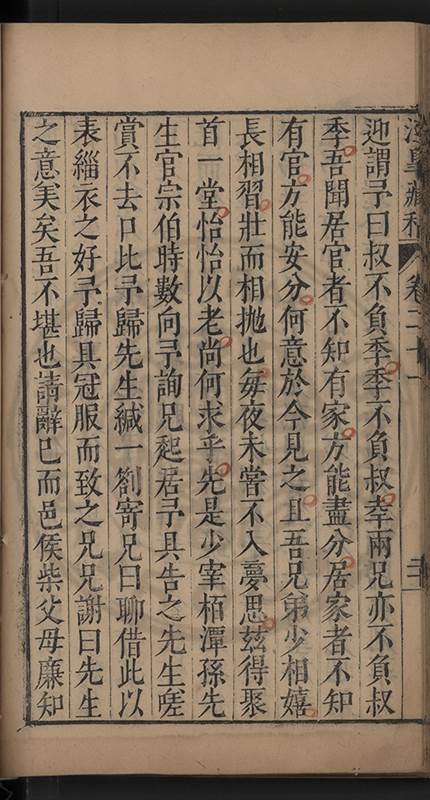 涇臯藏稿 卷二十一
迎謂予曰叔不負季季不負叔幸兩兄亦不負叔
季吾聞居官者不知有家方能盡分居家者不知
有官方能安分何意於今見之且吾兄弟少相嬉
長相習壯而相抛也每夜未嘗不入夢思茲得聚
首一堂怡怡以老尚何求乎先是少宰栢潭孫先
生官宗伯時數向予詢兄起居予具告之先生嗟
賞不去口比予歸先生緘一劄寄兄曰聊借此以
表緇衣之好予歸具冠服而致之兄兄謝曰先生
之意美矣吾不堪也請辭已而邑侯柴父母廉知